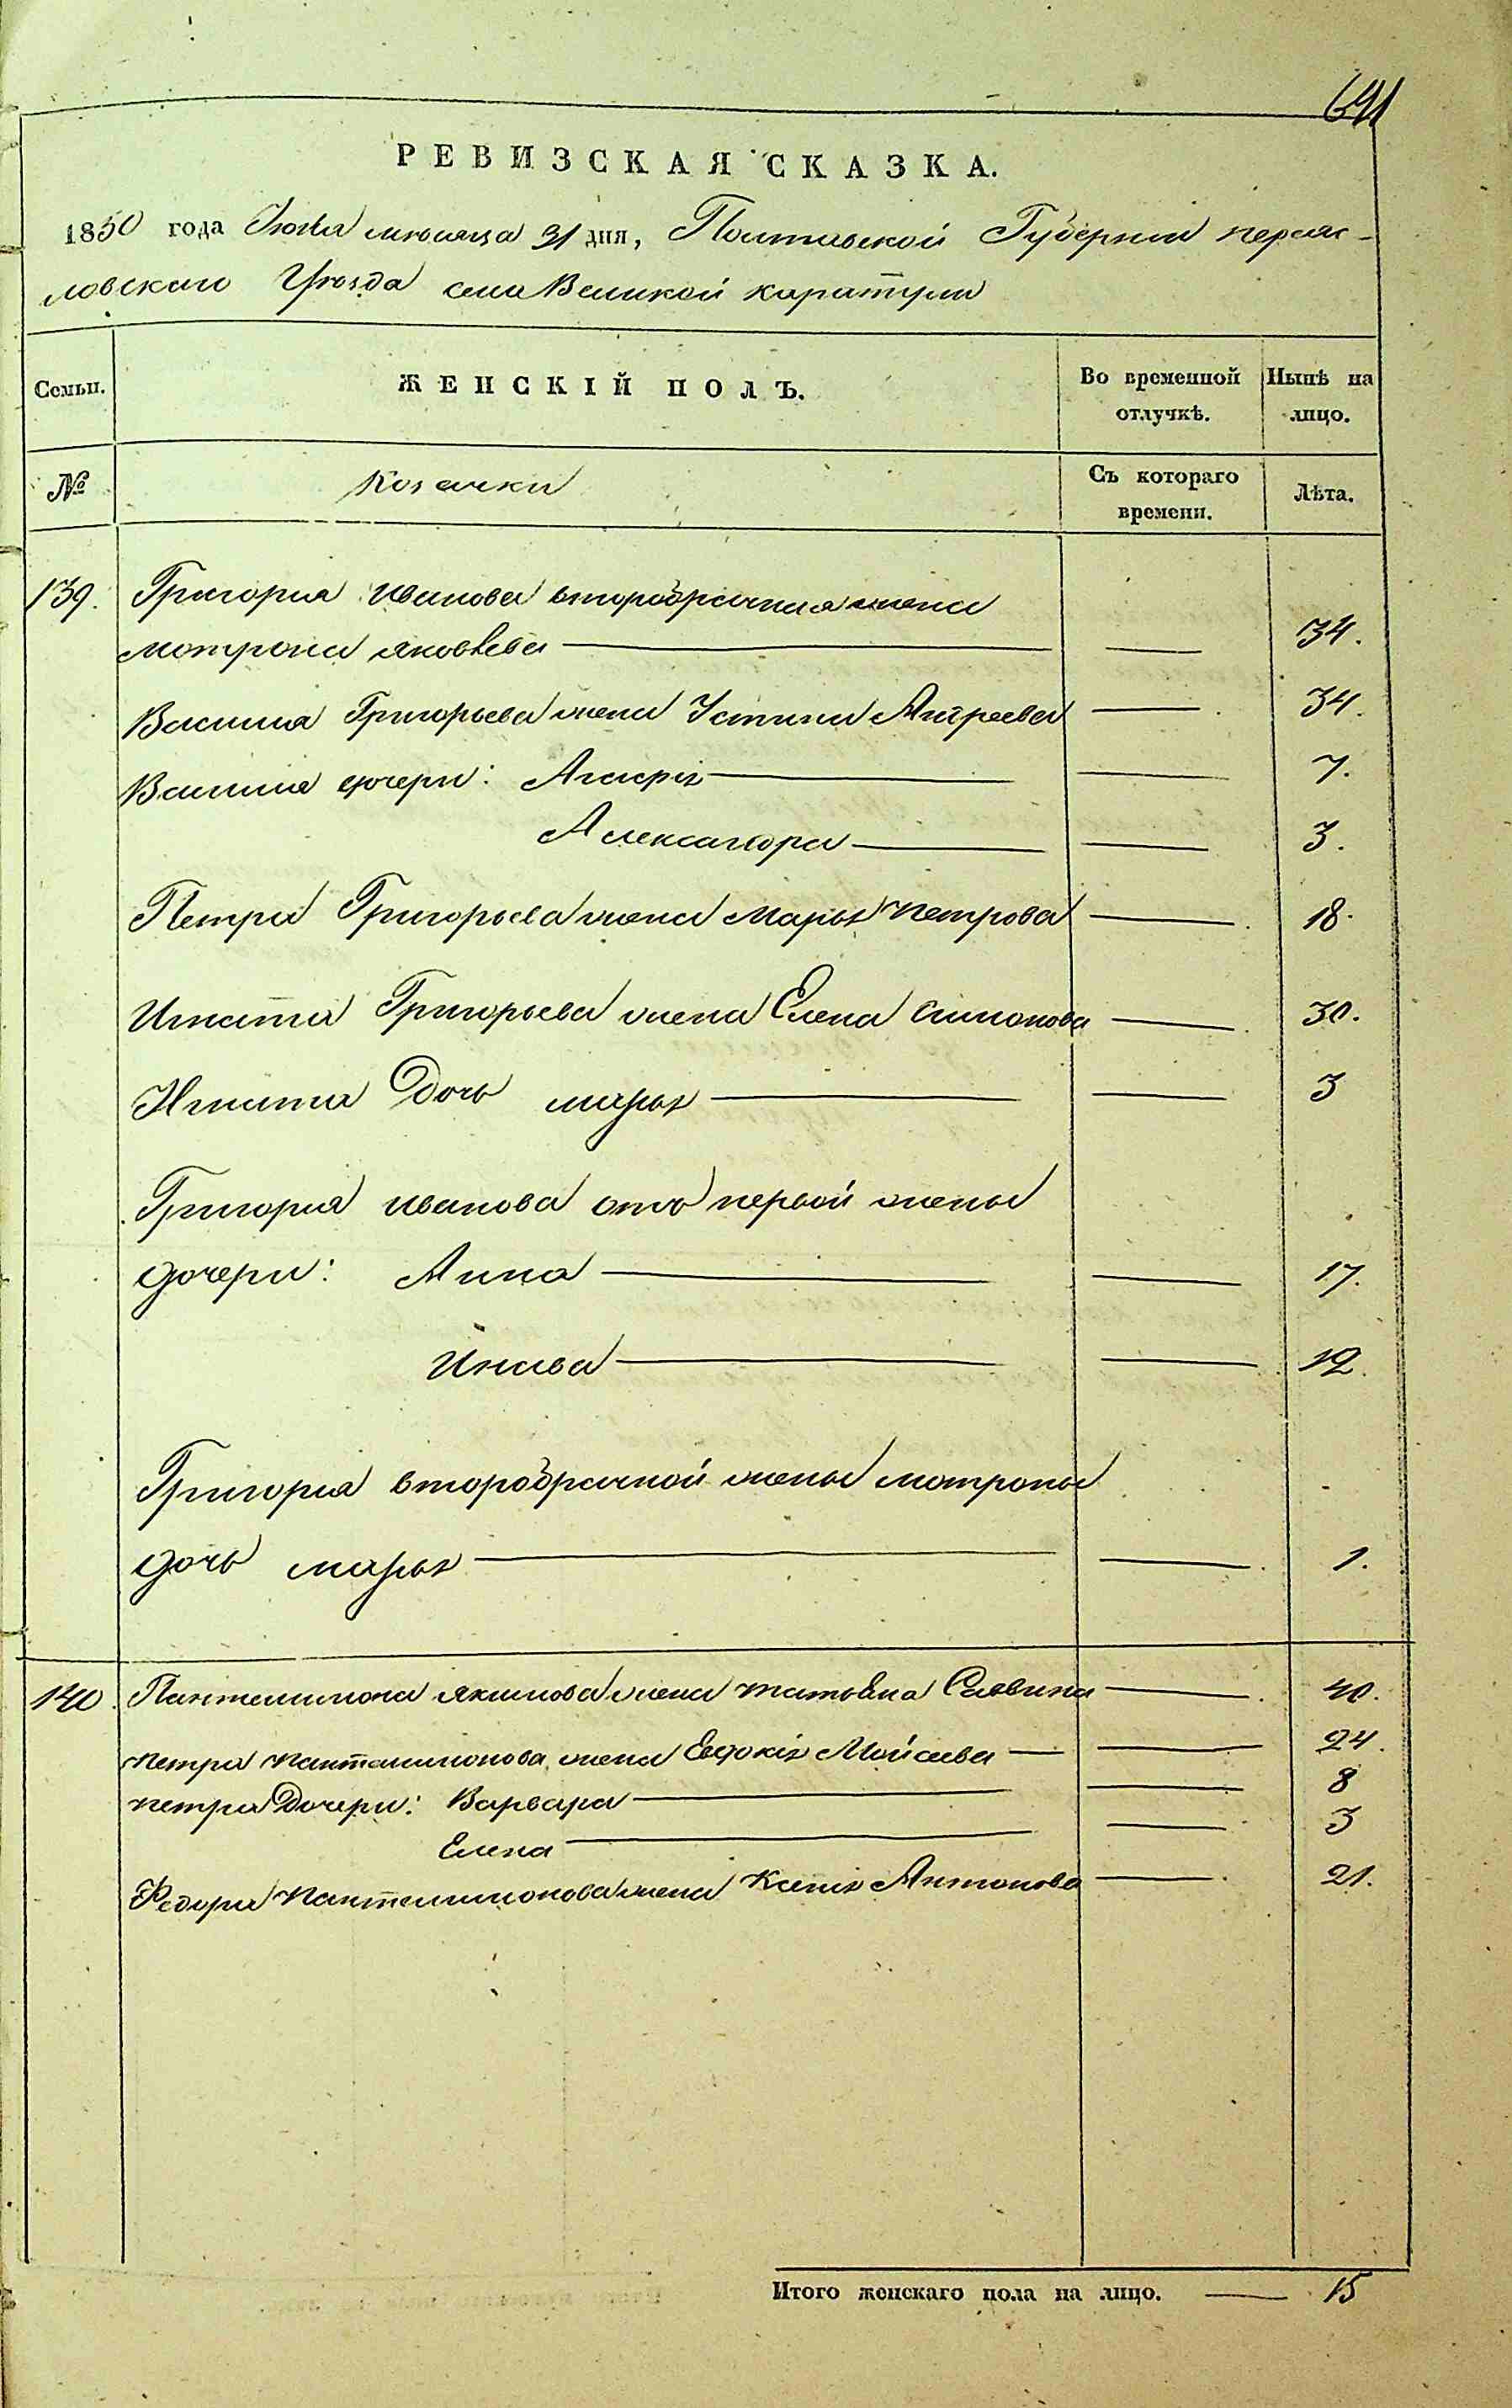 641
РЕВИЗСКАЯ СКАЗКА.
1850 года Июля мѣсяца 31 дня, Полтавской Губерніи переяс-
ловскаго Уѣзда села Великой каратули
Семьи.
ЖЕНСКІЙ ПОЛЪ.
Во временной отлучкѣ.
Нынѣ на лицо.
№
Козачки
Съ котораго времени.
Лѣта.
139. Григорія иванова второбрачная жена
мотрона яковлева — — 34.
Василія Григорьева жена Устина Андреева — 34.
Василія дочери: — — 7.
Александра — — 3.
Петра Григорьева жена Марья петрова — 18.
Игната Григорьева жена Елена симонова — 30.
Игната Дочь марья — — 3
Григорія иванова отъ первой жены
дочери: Анна — — 17.
— — 12.
Григорія второбрачной жены мотроны
дочь марья — — 1.
140. Пантелимона якимова жена татьяна Саввина — 40.
петра пантелимонова жена Евдокія Мойсеева — — 24.
петра Дочери: Варвара — — 8
Елена — — 3
Федора пантелимонова жена Ксенія Антонова — 21.
Итого женскаго пола на лицо. — 15